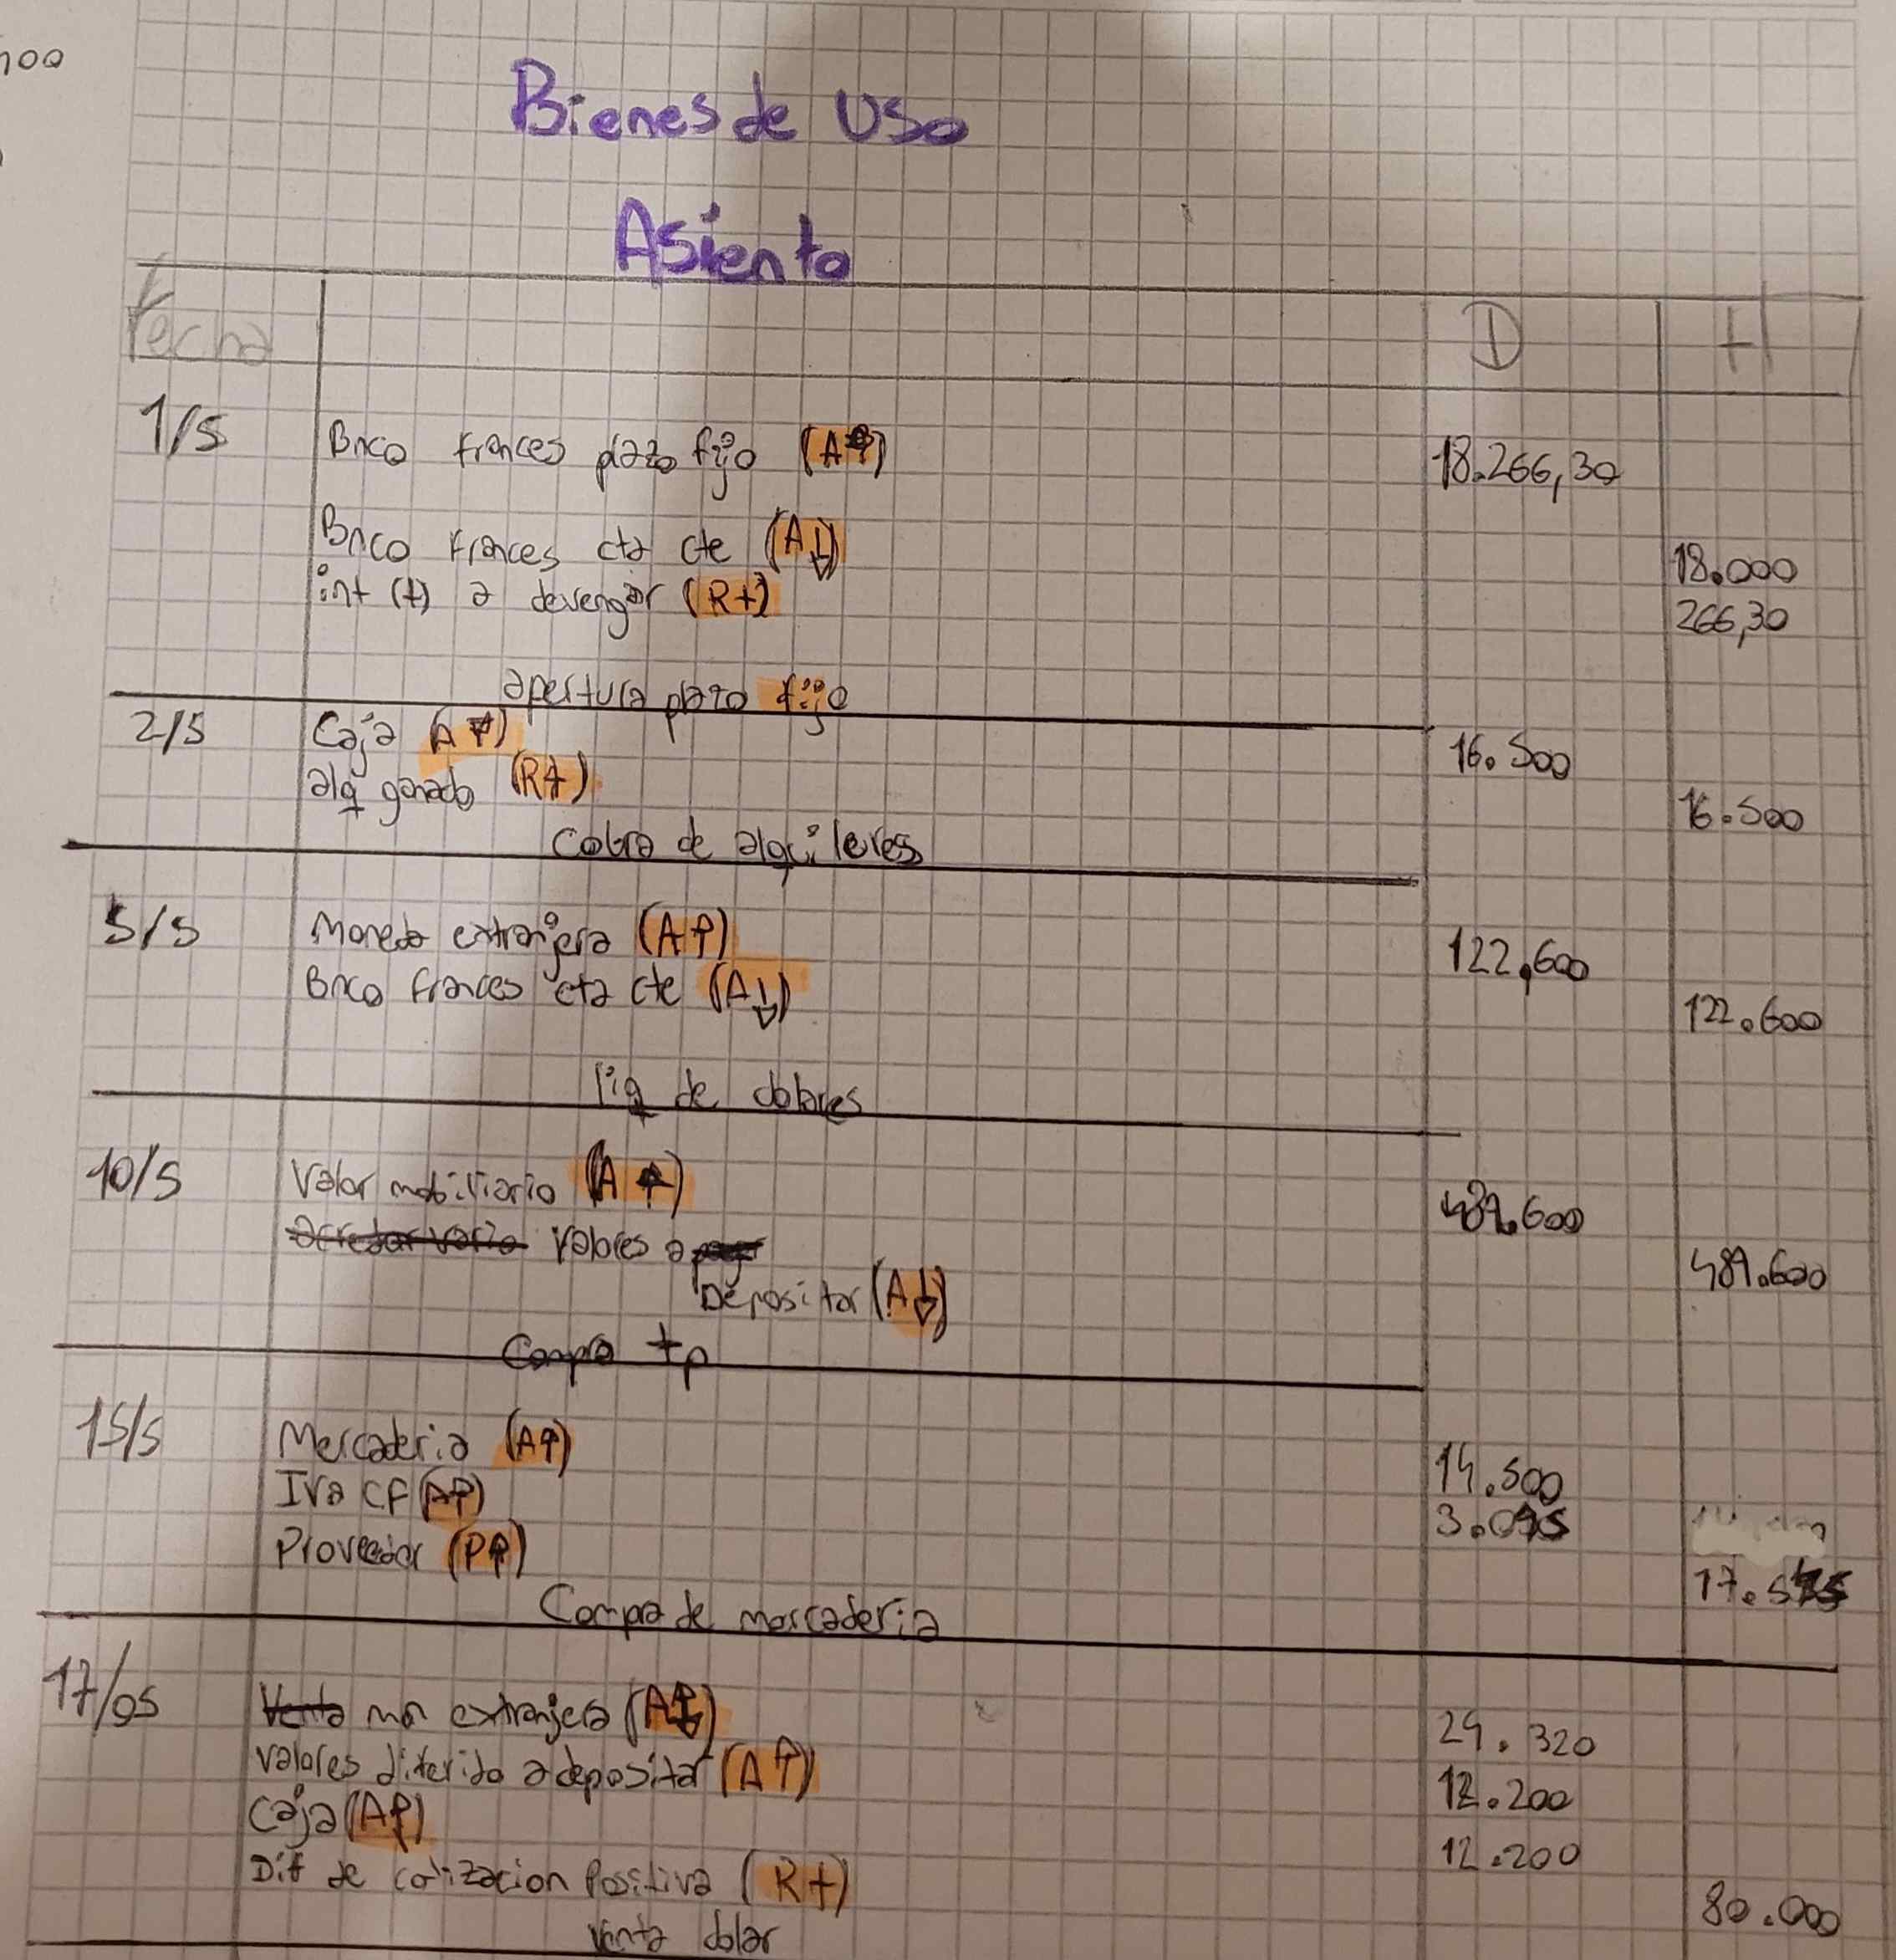 100
Bienes de Uso
Asiento
Fecha D H
1/5 Bnco frances plazo fijo (A↑) 18.266,30
Bnco frances cta cte (A↓) 18.000
int (+) a devengar (R+) 266,30
apertura plazo fijo
2/5 Caja (A↑) 16.500
alq ganado (R+) 16.500
Cobro de alquileres
5/5 Moneda extranjera (A↑) 122,600
Bnco frances cta cte (A↓) 122.600
liq de dolares
10/5 Valor mobiliario (A↑) 489.600
acredor vario valores a
Depositar (A↓) 489.600
Compra tp
15/5 Mercaderia (A↑) 14.500
Iva CF (A↑) 3.045
Proveedor (P↑) 17.545
Compra de mercaderia
17/05 Venta mon extranjera (A↓) 24.320
valores diferido a depositar (A↑) 12.200
Caja (A↑) 12.200
Dif de cotizacion Positiva (R+) 80.000
venta dolar